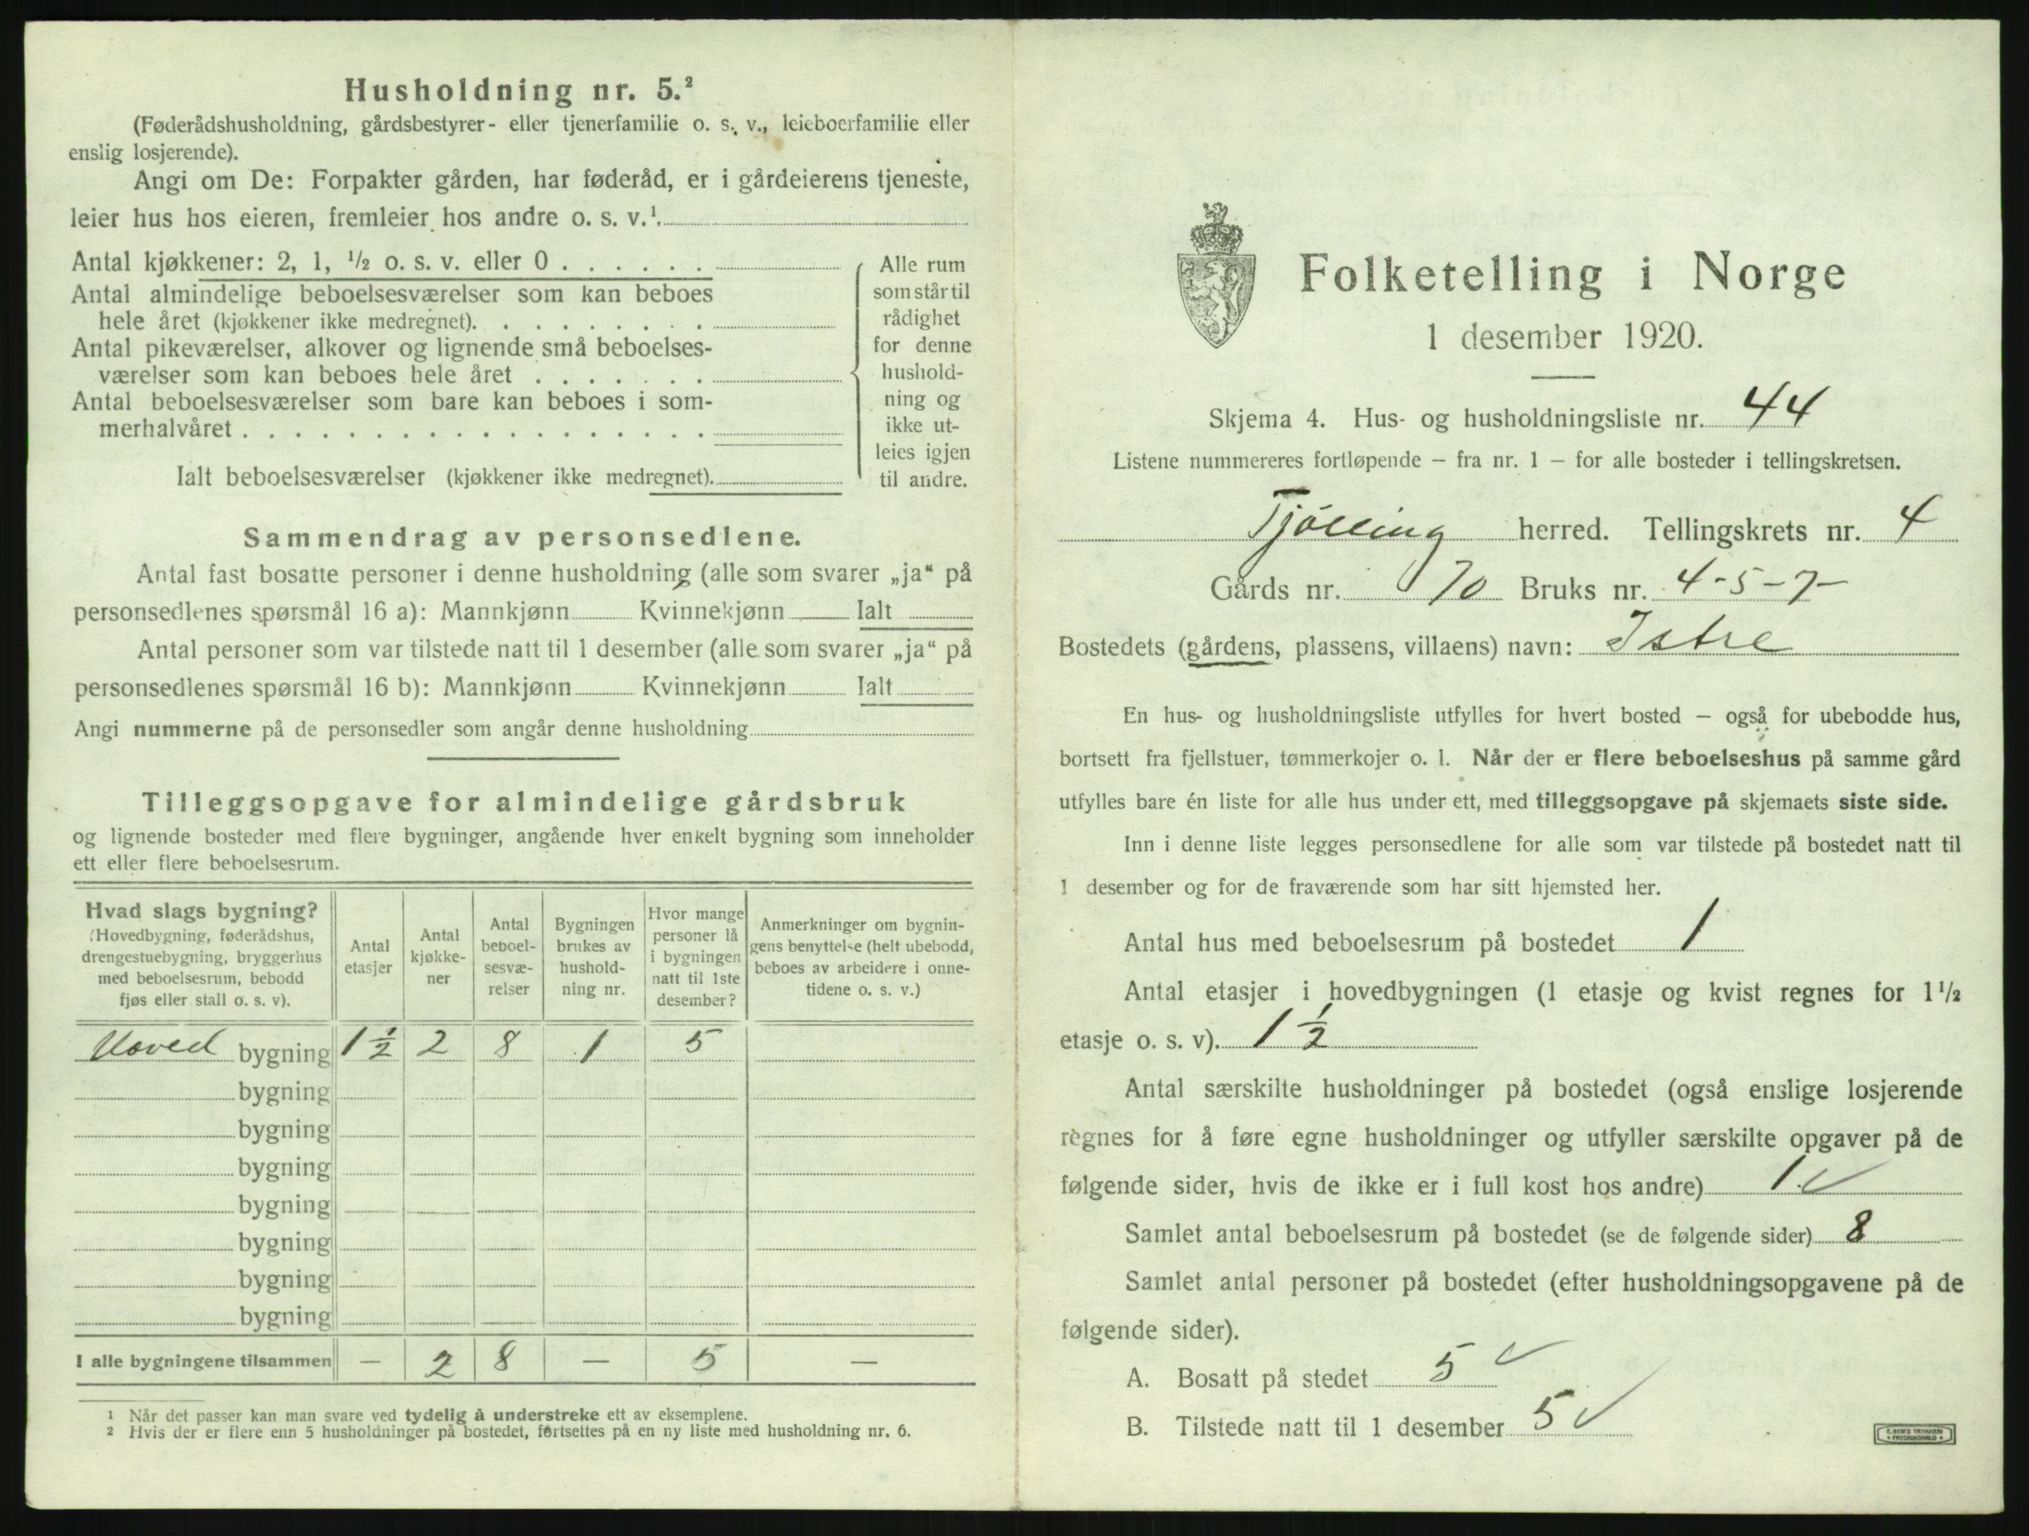 Husholdning nr. 5.²
(Føderådshusholdning, gårdsbestyrer- eller tjenerfamilie o. s. v., leieboerfamilie eller
enslig losjerende).
Angi om De: Forpakter gården, har føderåd, er i gårdeierens tjeneste,
leier hus hos eieren, fremleier hos andre o. s. v.¹.
Antal kjøkkener: 2, 1, ½ o. s. v. eller 0 . . . . . .
Antal almindelige beboelsesværelser som kan beboes
hele året (kjøkkener ikke medregnet). . . . . . . . .
Antal pikeværelser, alkover og lignende små beboelses-
værelser som kan beboes hele året . . . . . . .
Antal beboelsesværelser som bare kan beboes i som-
merhalvåret . . . . . . . . . . . . . . . . . .
Ialt beboelsesværelser (kjøkkener ikke medregnet).
Alle rum
som står til
rådighet
for denne
hushold-
ning og
ikke ut-
leies igjen
til andre.
Sammendrag av personsedlene.
Antal fast bosatte personer i denne husholdning (alle som svarer „ja“ på
personsedlenes spørsmål 16 a): Mannkjønn Kvinnekjønn Ialt
Antal personer som var tilstede natt til 1 desember (alle som svarer „ja“ på
personsedlenes spørsmål 16 b): Mannkjønn Kvinnekjønn Ialt
Angi nummerne på de personsedler som angår denne husholdning
Tilleggsopgave for almindelige gårdsbruk
og lignende bosteder med flere bygninger, angående hver enkelt bygning som inneholder
ett eller flere beboelsesrum.
Hvad slags bygning?
(Hovedbygning, føderådshus,
drengestuebygning, bryggerhus
med beboelsesrum, bebodd
fjøs eller stall o. s. v).
Antal
etasjer
Antal
kjøkke-
ner
Antal
beboel-
sesvæ-
relser
Bygningen
brukes av
hushold-
ning nr.
Hvor mange
personer lå
i bygningen
natt til 1ste
desember?
Anmerkninger om bygnin-
gens benyttelse (helt ubebodd,
beboes av arbeidere i onne-
tidene o. s. v.)
Hoved bygning 1½ 2 8 1 5
bygning
bygning
bygning
bygning
bygning
bygning
bygning
I alle bygningene tilsammen — 2 8 — 5 —
¹ Når det passer kan man svare ved tydelig å understreke ett av eksemplene.
² Hvis der er flere enn 5 husholdninger på bostedet, fortsettes på en ny liste med husholdning nr. 6.
Folketelling i Norge
1 desember 1920.
Skjema 4. Hus- og husholdningsliste nr. 44
Listene nummereres fortløpende – fra nr. 1 – for alle bosteder i tellingskretsen.
Tjølling herred. Tellingskrets nr. 4
Gårds nr. 70 Bruks nr. 4-5-7-
Bostedets (gårdens, plassens, villaens) navn: Istre
En hus- og husholdningsliste utfylles for hvert bosted – også for ubebodde hus,
bortsett fra fjellstuer, tømmerkojer o. l. Når der er flere beboelseshus på samme gård
utfylles bare én liste for alle hus under ett, med tilleggsopgave på skjemaets siste side.
Inn i denne liste legges personsedlene for alle som var tilstede på bostedet natt til
1 desember og for de fraværende som har sitt hjemsted her.
Antal hus med beboelsesrum på bostedet 1
Antal etasjer i hovedbygningen (1 etasje og kvist regnes for 1½
etasje o. s. v). 1½
Antal særskilte husholdninger på bostedet (også enslige losjerende
regnes for å føre egne husholdninger og utfyller særskilte opgaver på de
følgende sider, hvis de ikke er i full kost hos andre) 1. ✓
Samlet antal beboelsesrum på bostedet (se de følgende sider) 8
Samlet antal personer på bostedet (efter husholdningsopgavene på de
følgende sider).
A. Bosatt på stedet 5 ✓
B. Tilstede natt til 1 desember 5 ✓